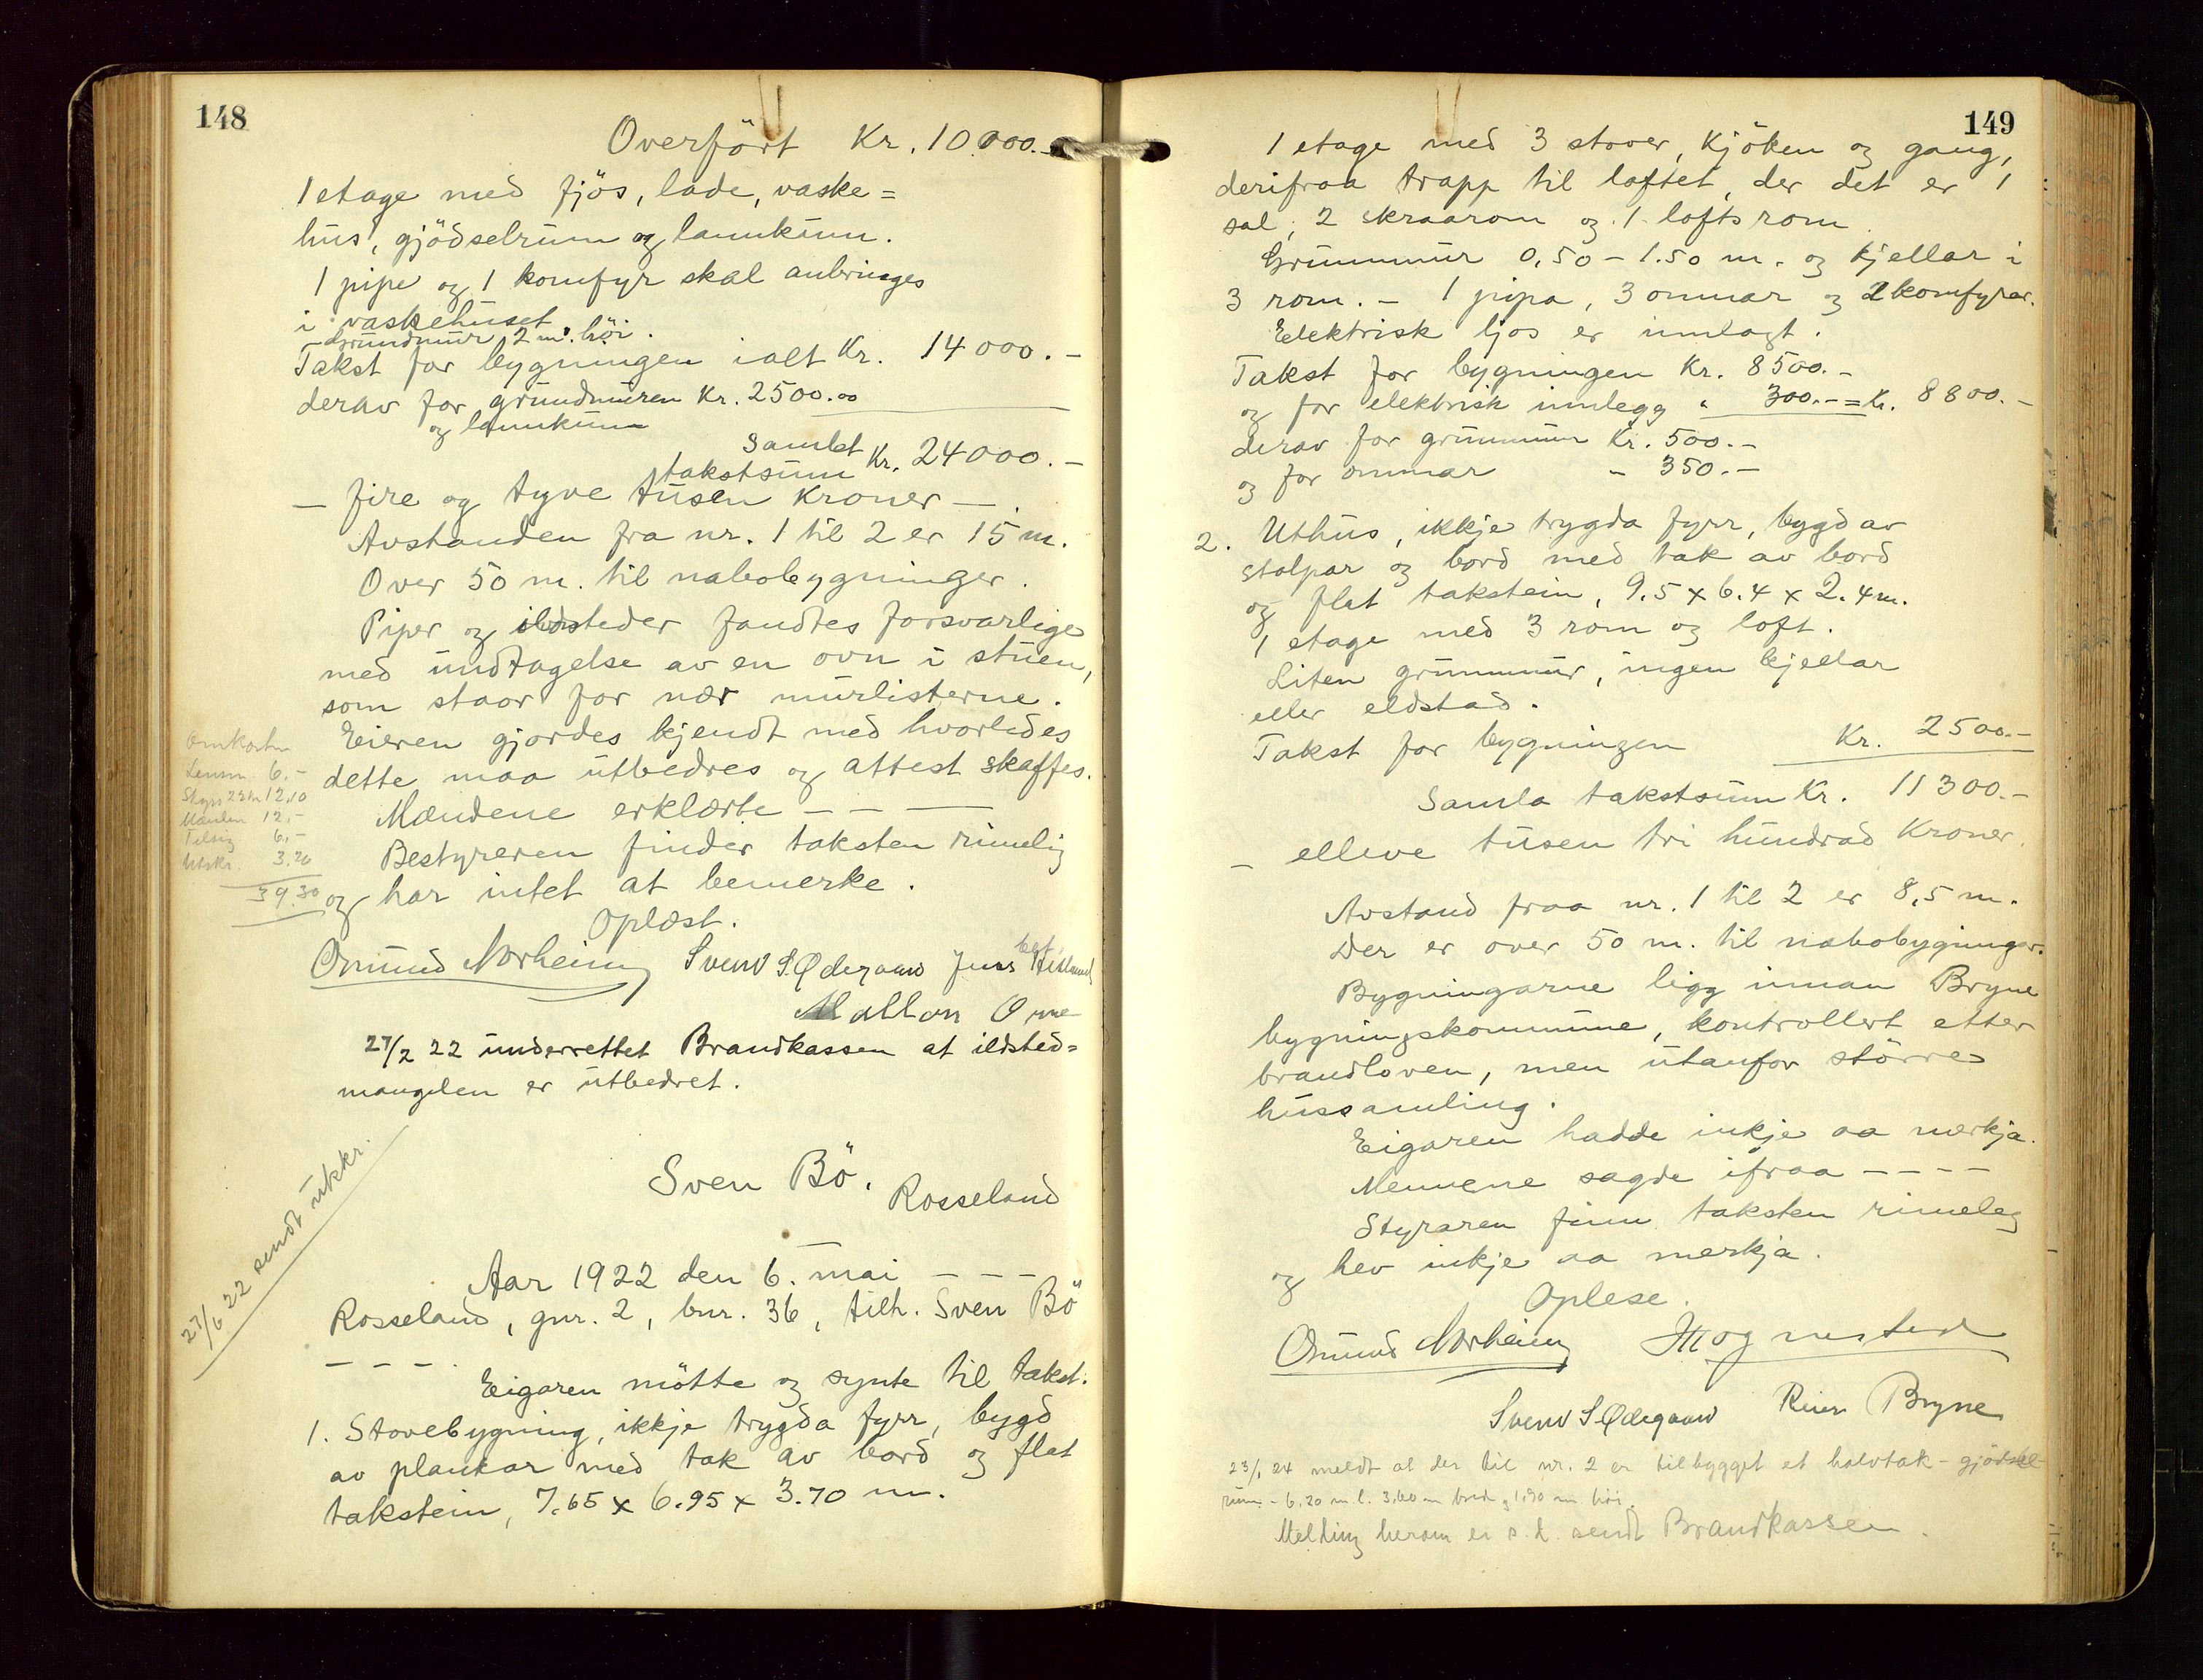 148
Overfört Kr. 10.000.-
1 etage med fjös, lade, vaske=
hus, gjödselrum og lannkum.
1 pipe og 1 komfyr skal anbringes
i vaskehuset.
Grundmur 2 m. höi.
Takst for bygningen ialt Kr. 14000.-
derav for grundmuren Kr. 2500.00
og lannkum
Samlet
takstsum Kr. 24000.-
- fire og tyve tusen Kroner -.
Avstanden fra nr. 1 til 2 er 15 m.
Over 50 m. til nabobygninger.
Piper og ildsteder fandtes forsvarlige
med undtagelse av en ovn i stuen,
som staar for nær murlisterne.
Eieren gjordes kjendt med hvorledes
dette maa utbedres og attest skaffes.
Mændene erklærte - - -
Bestyreren finder taksten rimelig
og har intet at bemerke.
Oplæst.
Omkostn
Lensm. 6.-
Styrs 22 km 12.10
Mændene 12.-
Tilsig 6.-
Utskr. 3.20
39.30
Omund Norheim Svend S. Ødegaard Jens Hetland
Mallon Orre
27/2 22 underrettet Brandkassen at ildsted=
mangelen er utbedret.
27/6 22 sendt utskr.
Sven Bö.
Rosseland
Aar 1922 den 6. mai - - -
Rosseland, gnr. 2, bnr. 36, tilh. Sven Bö
- - - .
Eigaren mötte og synte til takst.
1. Stovebygning, ikkje trygda fyrr, bygd
av plankar med tak av bord og flat
takstein, 7.65 x 6.95 x 3.70 m.
149
1 etage med 3 stover, kjöken og gang,
derifraa trapp til loftet, der det er 1
sal, 2 skraarom og 1 loftsrom.
Grunnmur 0,50 - 1.50 m. og kjellar i
3 rom. - 1 pipa, 3 omnar og 2 komfyrar.
Elektrisk ljos er innlagt.
Takst for bygningen Kr. 8500.-
og for elektrisk innlegg " 300.- = Kr. 8800.-
derav for grunnmur Kr. 500.-
og for omnar - 350.-
2. Uthus, ikkje trygda fyrr, bygd av
stolpar og bord med tak av bord
og flat takstein, 9.5 x 6.4 x 2.4 m.
1 etage med 3 rom og loft.
Liten grunnmur, ingen kjellar
eller eldstad.
Takst for bygningen Kr. 2500.-
Samla takstsum Kr. 11300.-
- elleve tusen tri hundrad Kroner.
Avstand fraa nr. 1 til 2 er 8,5 m.
Der er over 50 m. til nabobygningar.
Bygningarne ligg innan Bryne
bygningskommune, kontrollert etter
brandloven, men utanfor större
hussamling.
Eigaren hadde inkje aa merkja.
Mennene sagde ifraa - - - -
Styraren finn taksten rimeleg
og hev inkje aa merkja.
Oplese.
Omund Norheim
Svend S Ødegaard Reier Bryne
23/1 24 meldt at der til nr. 2 er tilbygget et halvtak - gjödsel-
rum - 6.20 m l. 3.60 m bred og 1.90 m höi.
Melding herom er s.d. sendt Brandkassen.